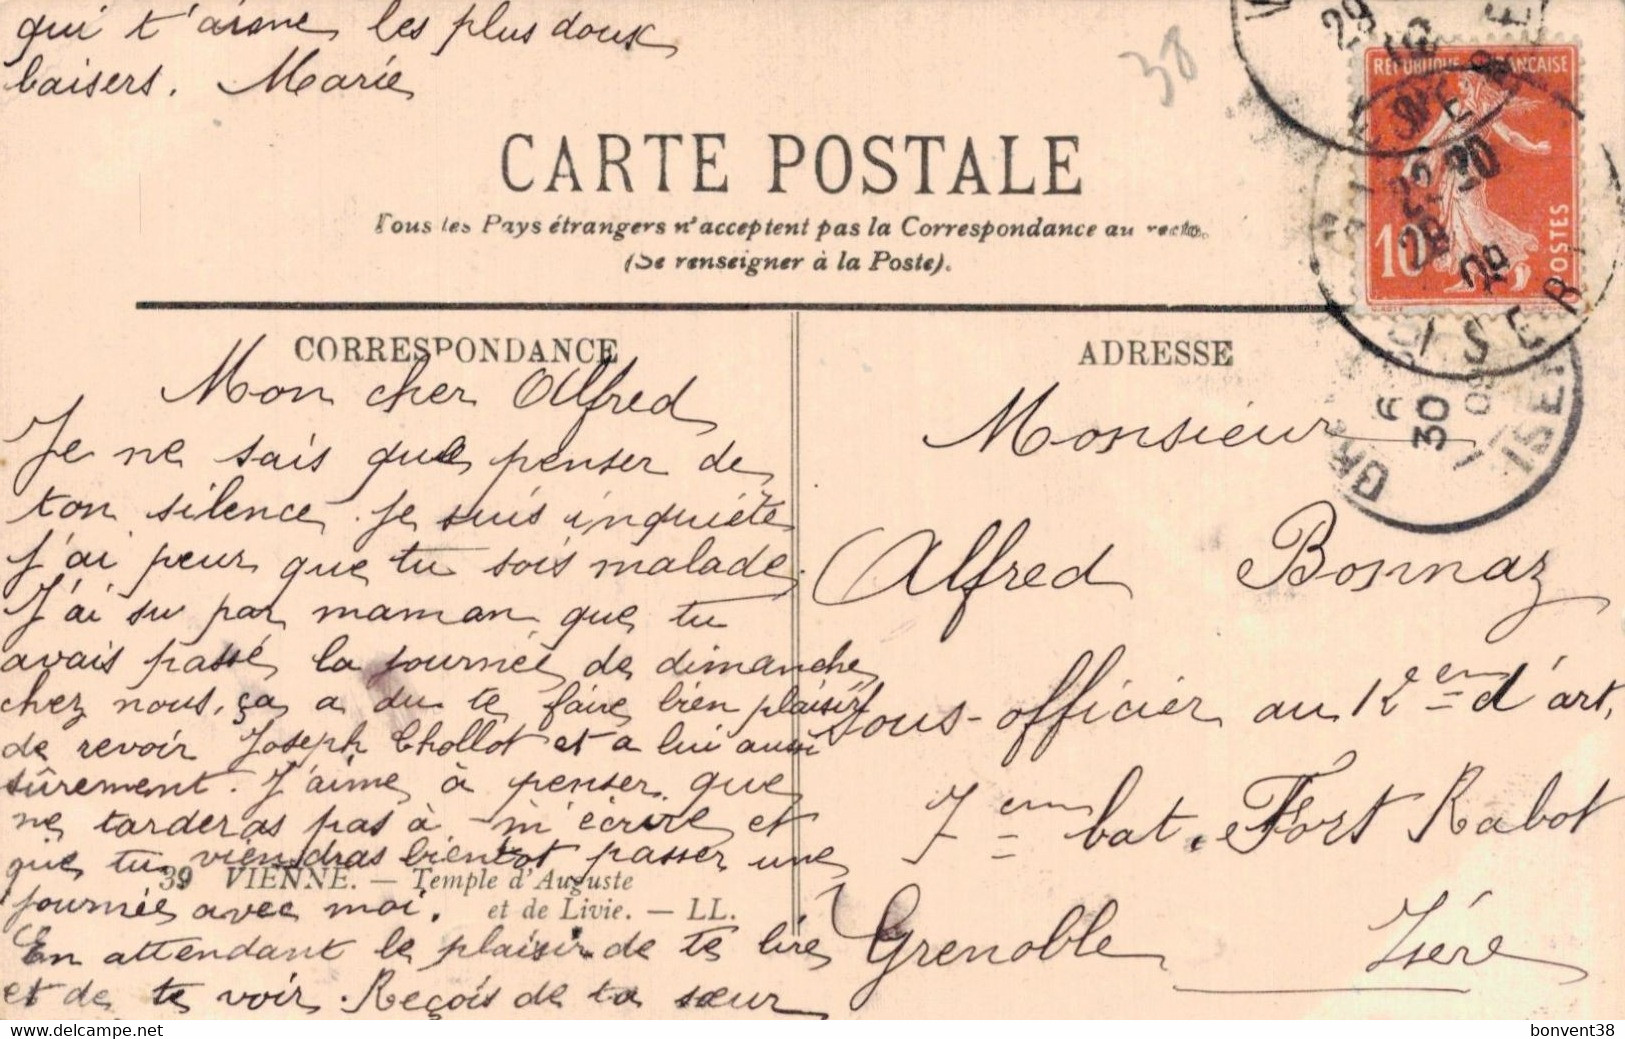 qui t'aime les plus doux
baisers. Marie
38
RÉPUBLIQUE FRANÇAISE
10
POSTES
CARTE POSTALE
Tous les Pays étrangers n'acceptent pas la Correspondance au recto.
(Se renseigner à la Poste).
CORRESPONDANCE
Mon cher Alfred
Je ne sais que penser de
ton silence. Je suis inquiète
J'ai peur que tu sois malade.
J'ai su par maman que tu
avais passé la journée de dimanche
chez nous, ça a du te faire bien plaisir
de revoir Joseph Chollot et a lui aussi
sûrement. J'aime à penser que
ne tarderas pas à m'écrire et
que tu viendras bientot passer une
39 VIENNE. — Temple d'Auguste
journée avec moi.
et de Livie. — LL.
En attendant le plaisir de te lire
et de te voir. Reçois de ta sœur
ADRESSE
Monsieur
Alfred Bonnaz
sous-officier au 12e em d'art,
7em bat. Fort Rabot
Grenoble Isère
ISERE
30
ISERE
www.delcampe.net
bonvent38